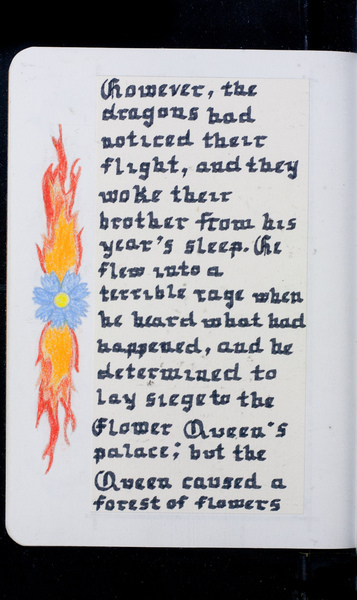 However, the
dragons had
noticed their
flight, and they
woke their
brother from his
year's sleep. He
flew into a
terrible rage when
he heard what had
happened, and he
determined to
lay siege to the
Flower Queen's
palace; but the
Queen caused a
forest of flowers